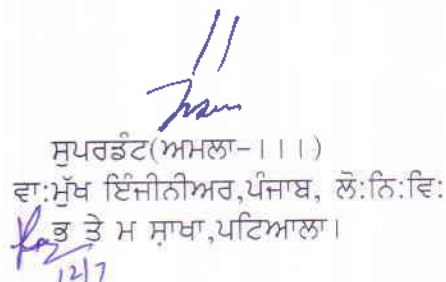 ਸੁਪਰਡੰਟ(ਅਮਲਾ-।।।)
ਵਾ:ਮੁੱਖ ਇੰਜੀਨੀਅਰ,ਪੰਜਾਬ, ਲੋ:ਨਿ:ਵਿ:
ਭ ਤੇ ਮ ਸ਼ਾਖਾ,ਪਟਿਆਲਾ।
12/7